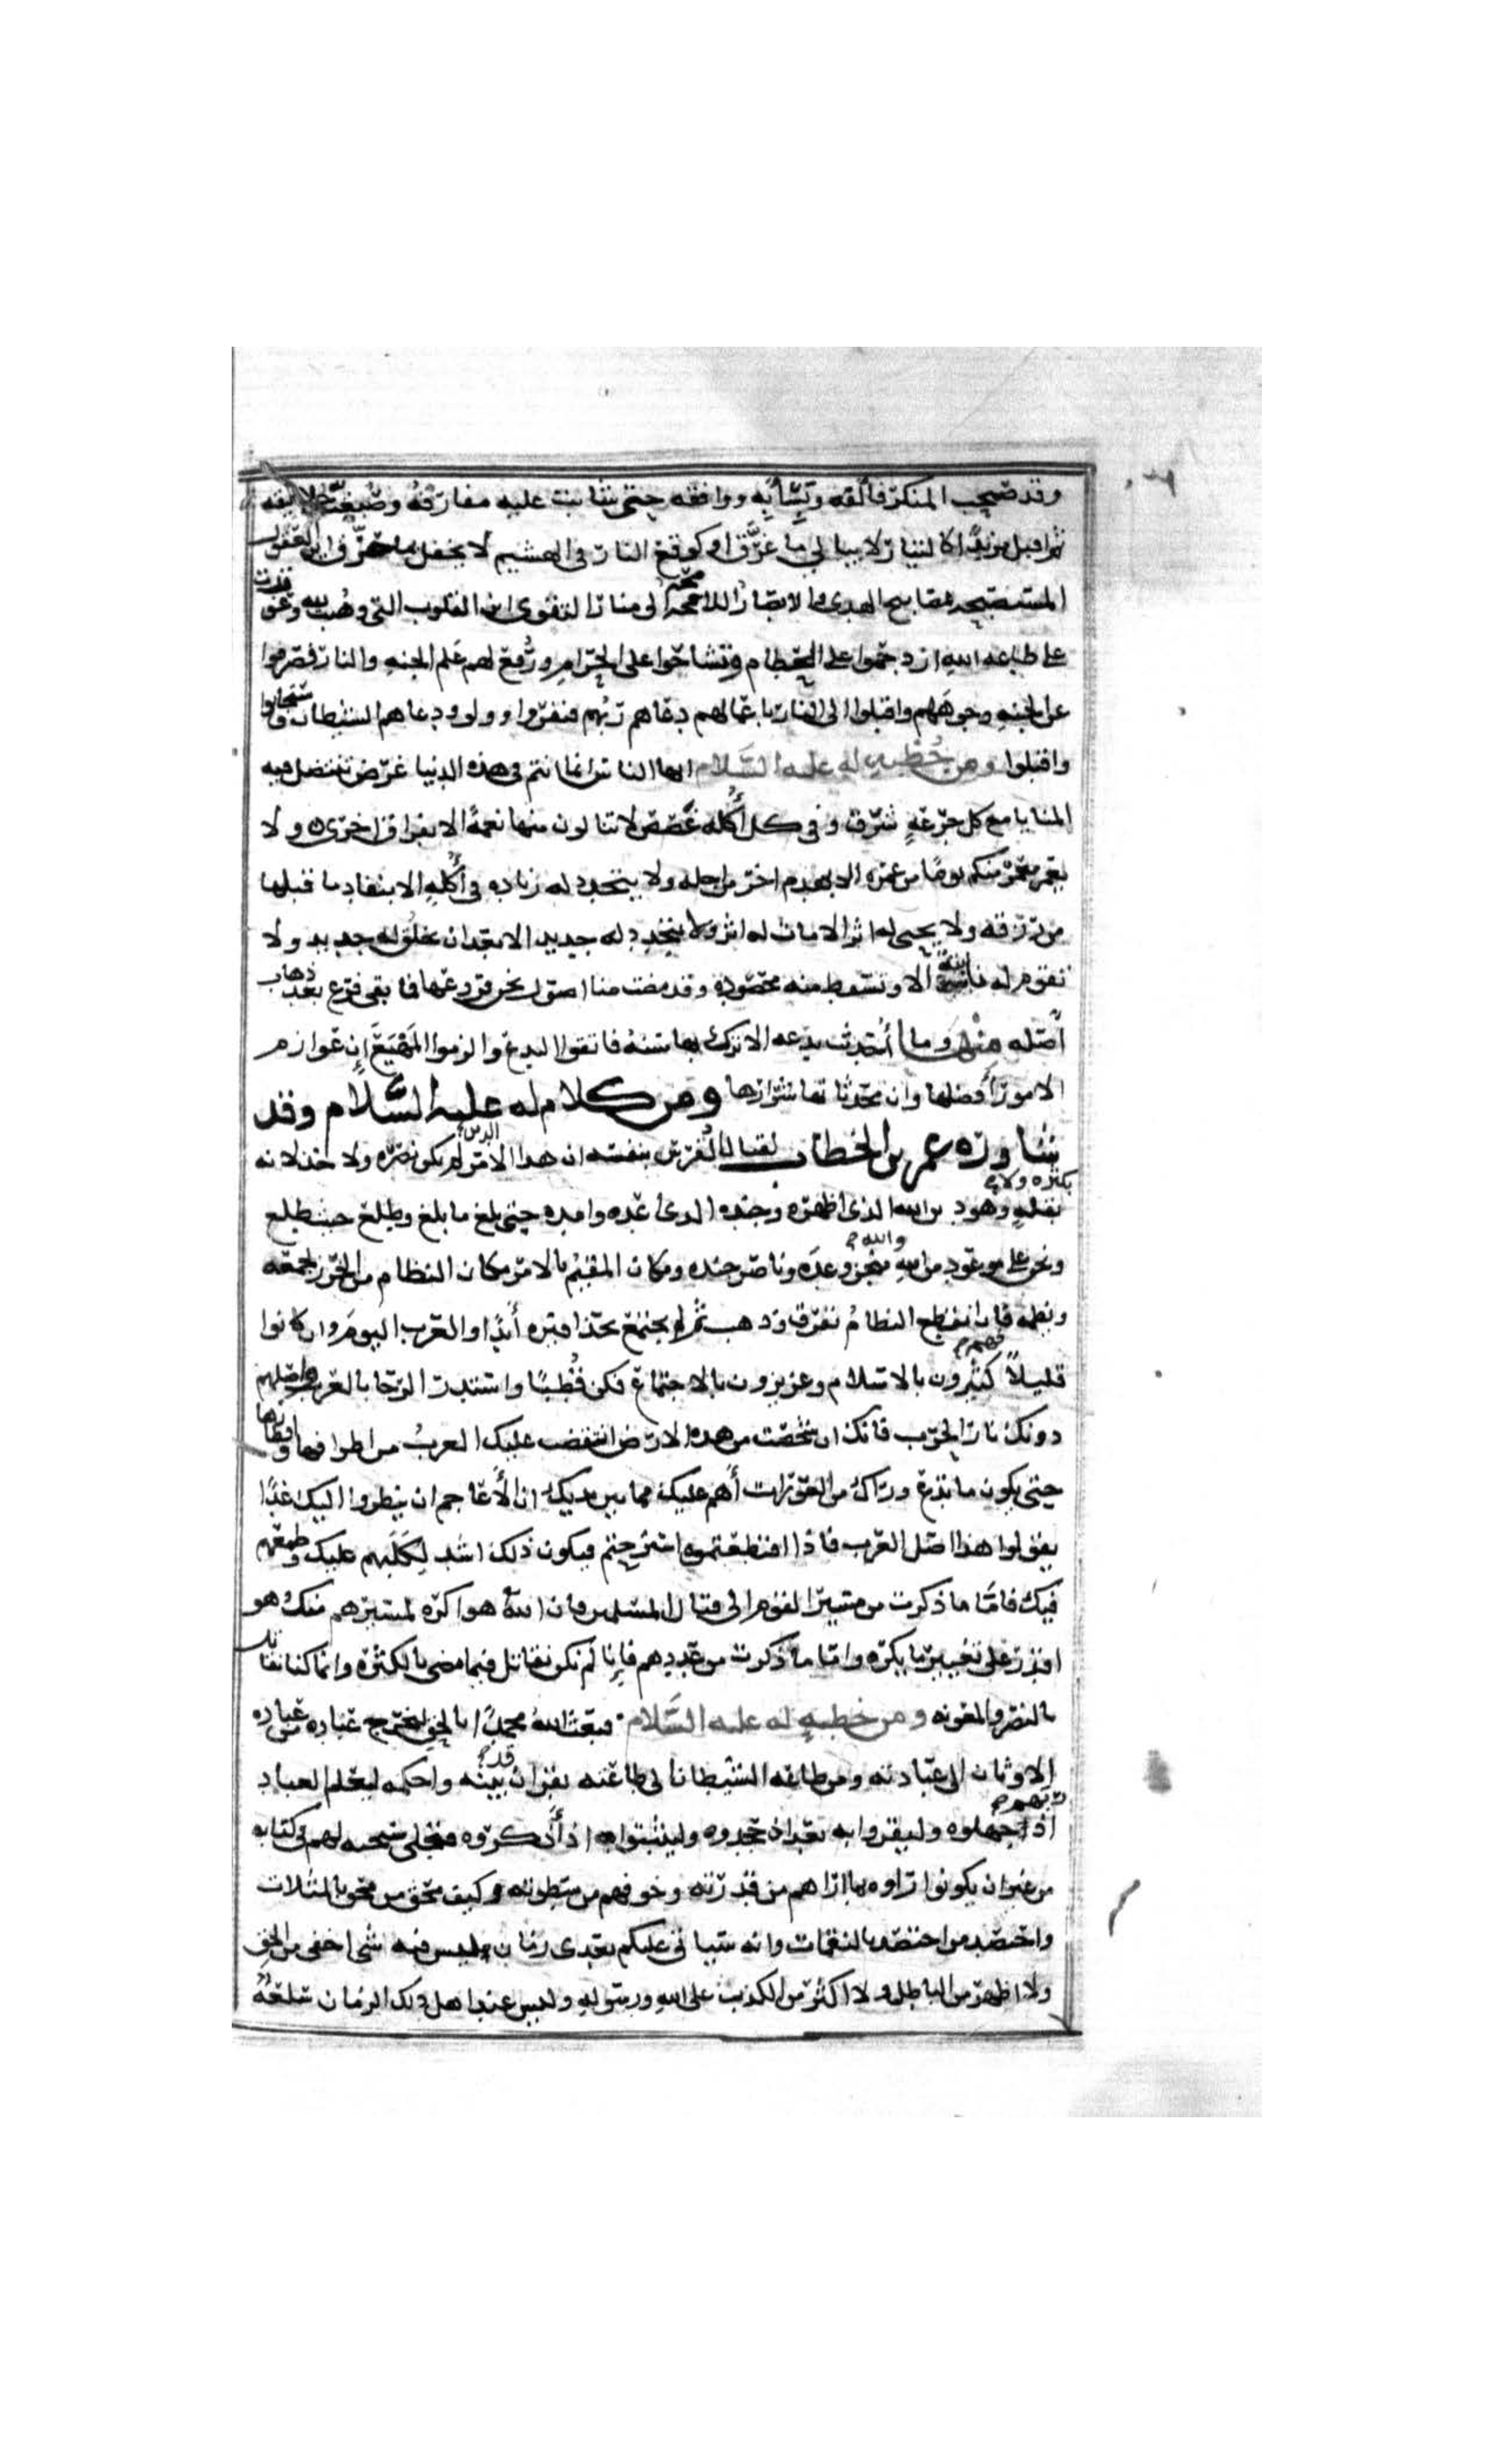 وقد صحب المنكر فألفه وبسأ به ووافقه حتى شابت عليه مفارقه وصبغت خلايقه
ثم اقبل مزبدا كالتيار لا يبالي ما غرّق او كوقع النار في الهشيم لا يحفل ما حرّق اين العقول
المستصبحه بمصابيح الهدى والابصار اللامحه الى منار التقوى اين القلوب التي وهبت لله وعوقدت
على طاعه الله ازدحموا على الحطام وتشاحوا على الحرام ورفع لهم علم الجنه والنار فصرفوا
عن الجنه وجوههم واقبلوا الى النار باعمالهم دعاهم ربهم فنفروا وولوا ودعاهم الشيطان فاستجابوا
واقبلوا ومن خطبه له عليه السلام ايها الناس انما انتم في هذه الدنيا غرض تنتضل فيه
المنايا مع كل جرعه شرق وفي كل أكله غصص لا تنالون منها نعمة الا بفراق اخرى ولا
يعمر معمر منكم يوما من عمره الا بهدم اخر من اجله ولا تجدد له زياده في أكله الا بنفاد ما قبلها
من رزقه ولا يحيى له اثر الا مات له اثر ولا يتجدد له جديد الا بعد ان يخلق له جديد ولا
تقوم له نابتة الا وتسقط منه محصوده وقد مضت منا اصول نحن فروعها فما بقى فرع بعد ذهاب
أصله منها وما أحدثت بدعه الا ترك بها سنه فاتقوا البدع والزموا المَهْيَعَ إن عوازم
الامور أفضلها وان محدثاتها شرارها ومن كلام له عليه السلام وقد
شاوره عمر بن الخطاب لقتال الفرس بنفسه ان هذا الامر لم يكن نصره ولا خذلانه
بكثره ولا
بقله وهو دين الله الذى اظهره وجنده الذى اعده وامده حتى بلغ ما بلغ وطلع حيث طلع
ونحن على موعود من الله والله منجز وعده وناصر جنده ومكان القيم بالامر مكان النظام من الخرز يجمعه
ويضمه فان انقطع النظام تفرق وذهب ثم لم يجتمع بحذافيره أبدا والعرب اليوم وان كانوا
قليلاً فهم كثيرون بالاسلام وعزيزون بالاجتماع فكن قُطْبًا واستدر الرحا بالعرب واصلهم
دونك نار الحرب فانك ان شخصت من هذه الارض انتقضت عليك العرب من اطرافها واقطارها
حتى يكون ما تدع وراك من العورات أهم عليك مما بين يديك ان الأعاجم ان ينظروا اليك غدا
يقولوا هذا اصل العرب فاذا اقتطعتموه استرحتم فيكون ذلك اشد لِكَلَبِهم عليك وطمعهم
فيك فامّا ما ذكرت من مسير القوم الى قتال المسلمين فان الله هو اكره لمسيرهم منك وهو
اقدر على تغيير ما يكره واما ما ذكرت من عددهم فإنا لم نكن نقاتل فيما مضى بالكثره وانما كنا نقاتل
بالنصر والمعونه ومن خطبه له عليه السلام فبعث الله محمدا بالحق ليخرج عباده من عباده
الاوثان الى عبادته ومن طاعه الشيطان الى طاعته بقران قد بينه واحكمه ليعلم العباد
ربهم اذ جهلوه وليقروا به بعد اذ جحدوه وليثبتوه اذ أنكروه فتجلى سبحنه لهم في كتابه
من غير ان يكونوا راوه بما اراهم من قدرته وخوفهم من سطوته وكيف محق من محق بالمثلات
واحتصد من احتصد بالنقمات وانه سياتى عليكم بعدى زمان ليس فيه شى اخفى من الحق
ولا اظهر من الباطل ولا اكثر من الكذب على الله ورسوله وليس عند اهل ذلك الزمان سلعة